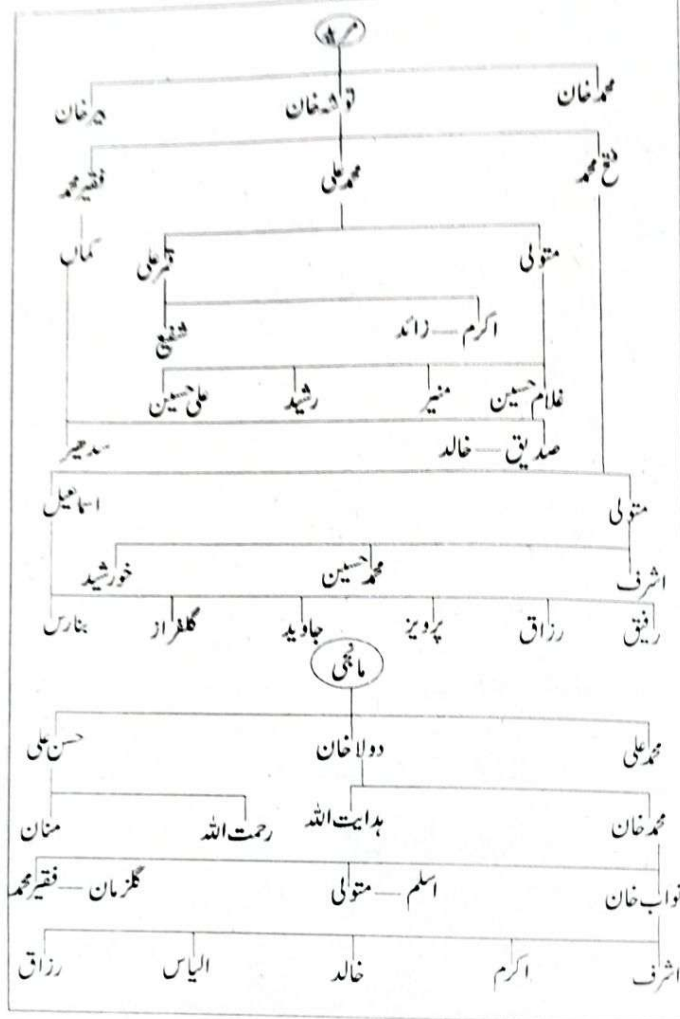 محمد خان نوشہ خان میر خان
فتح محمد محمد علی فقیر محمد
متولی قمر علی سماں
اکرم — زائد شفیع
غلام حسین منیر رشید علی حسین
صدیق — خالد سدھیر
متولی اسماعیل
اشرف محمد حسین خورشید
رفیق رزاق پرویز جاوید گلفراز بنارس
مانجی
محمد علی دولا خان حسن علی
محمد خان ہدایت اللہ رحمت اللہ منان
نواب خان اسلم — متولی گلزمان — فقیر محمد
اشرف اکرم خالد الیاس رزاق